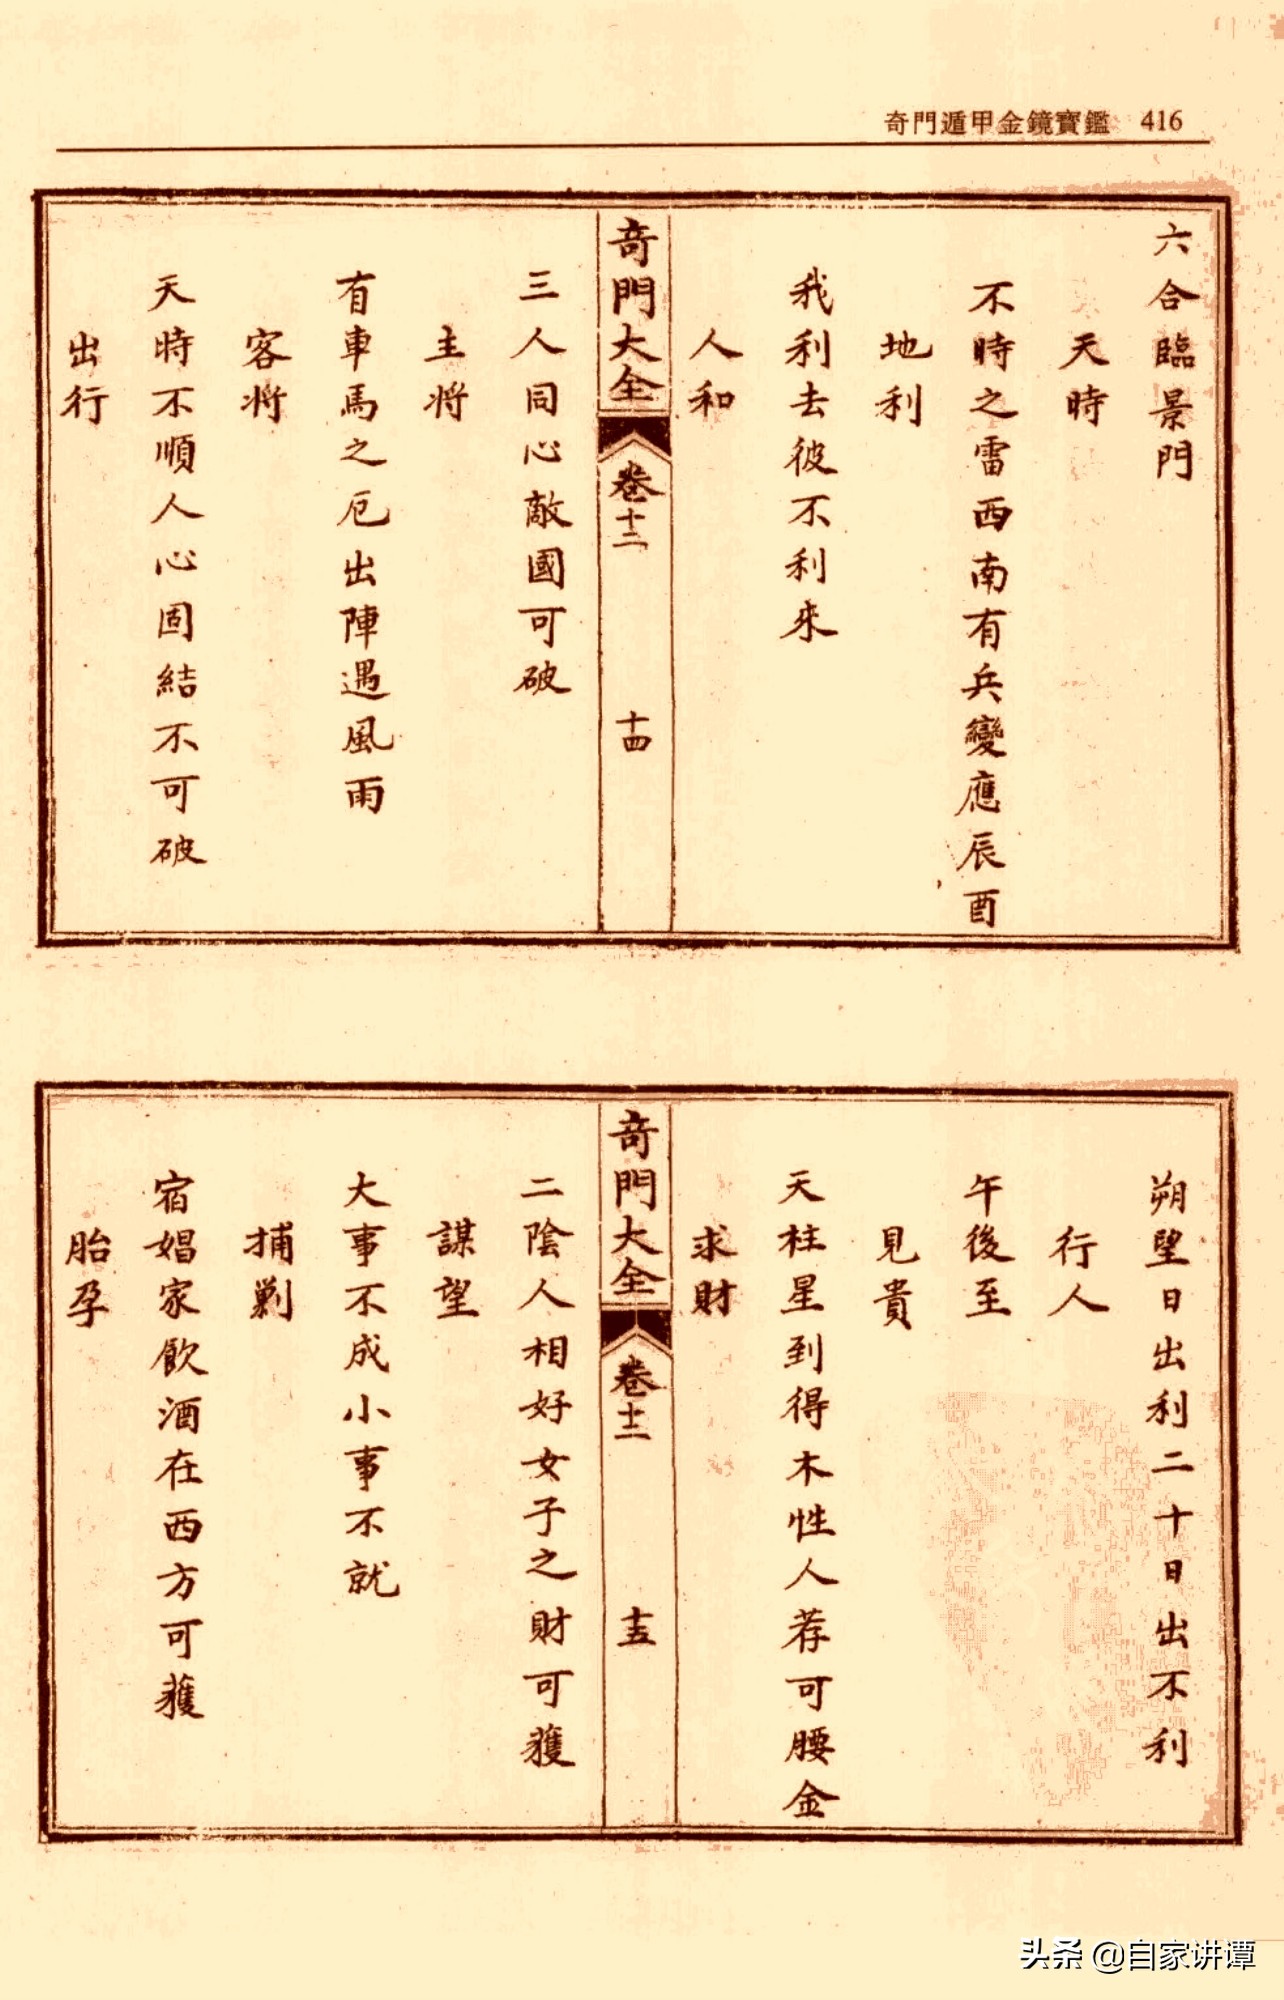 奇門遁甲金鏡寶鑑 416
六合臨景門
天時
不時之雷西南有兵變應辰酉
地利
我利去彼不利來
人和
奇門大全 卷十二 十四
三人同心敵國可破
主將
有車馬之厄出陣遇風雨
客將
天時不順人心固結不可破
出行
朔望日出利二十日出不利
行人
午後至
見貴
天柱星到得木性人荐可腰金
求財
奇門大全 卷十二 十五
二陰人相好女子之財可獲
謀望
大事不成小事不就
捕剿
宿娼家飲酒在西方可獲
胎孕
头条 @自家讲谭